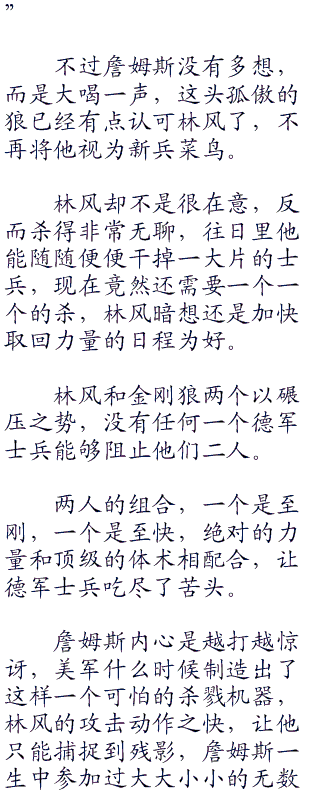 ”
不过詹姆斯没有多想，
而是大喝一声，这头孤傲的
狼已经有点认可林风了，不
再将他视为新兵菜鸟。
林风却不是很在意，反
而杀得非常无聊，往日里他
能随随便便干掉一大片的士
兵，现在竟然还需要一个一
个的杀，林风暗想还是加快
取回力量的日程为好。
林风和金刚狼两个以碾
压之势，没有任何一个德军
士兵能够阻止他们二人。
两人的组合，一个是至
刚，一个是至快，绝对的力
量和顶级的体术相配合，让
德军士兵吃尽了苦头。
詹姆斯内心是越打越惊
讶，美军什么时候制造出了
这样一个可怕的杀戮机器，
林风的攻击动作之快，让他
只能捕捉到残影，詹姆斯一
生中参加过大大小小的无数